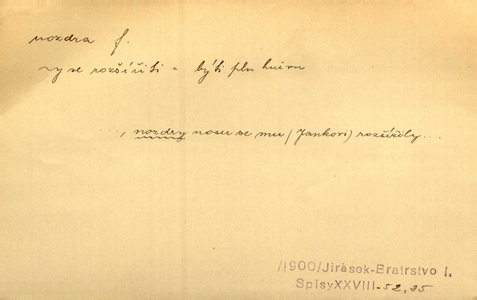 nozdra f.
~y se rozšířiti = býti pln hněvu
..., nozdry nosu se mu (Jankovi) rozšířily...
/1900/Jirásek-Bratrstvo I.
Spisy XXVIII-52,35